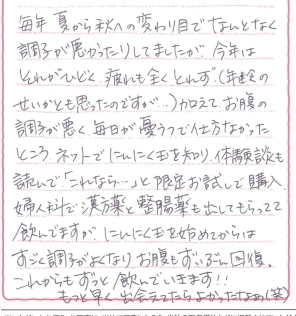 毎年 夏から秋への変わり目でなんとなく
調子が悪かったりしてましたが、今年は
それがひどく、疲れも全くとれず(年齢の
せいかとも思ったのですが…)加えてお腹の
調子が悪く毎日が憂うつで仕方なかった
ところ ネットでにんにく玉を知り、体験談も
読んで「これなら…」と限定お試しで購入。
婦人科で漢方薬と整腸薬も出してもらってて
飲んでますが、にんにく玉を始めてからは
すごく調子がよくなりお腹もずいぶん回復。
これからもずっと飲んでいきます!!
もっと早く出会えてたらよかったなぁ(笑)